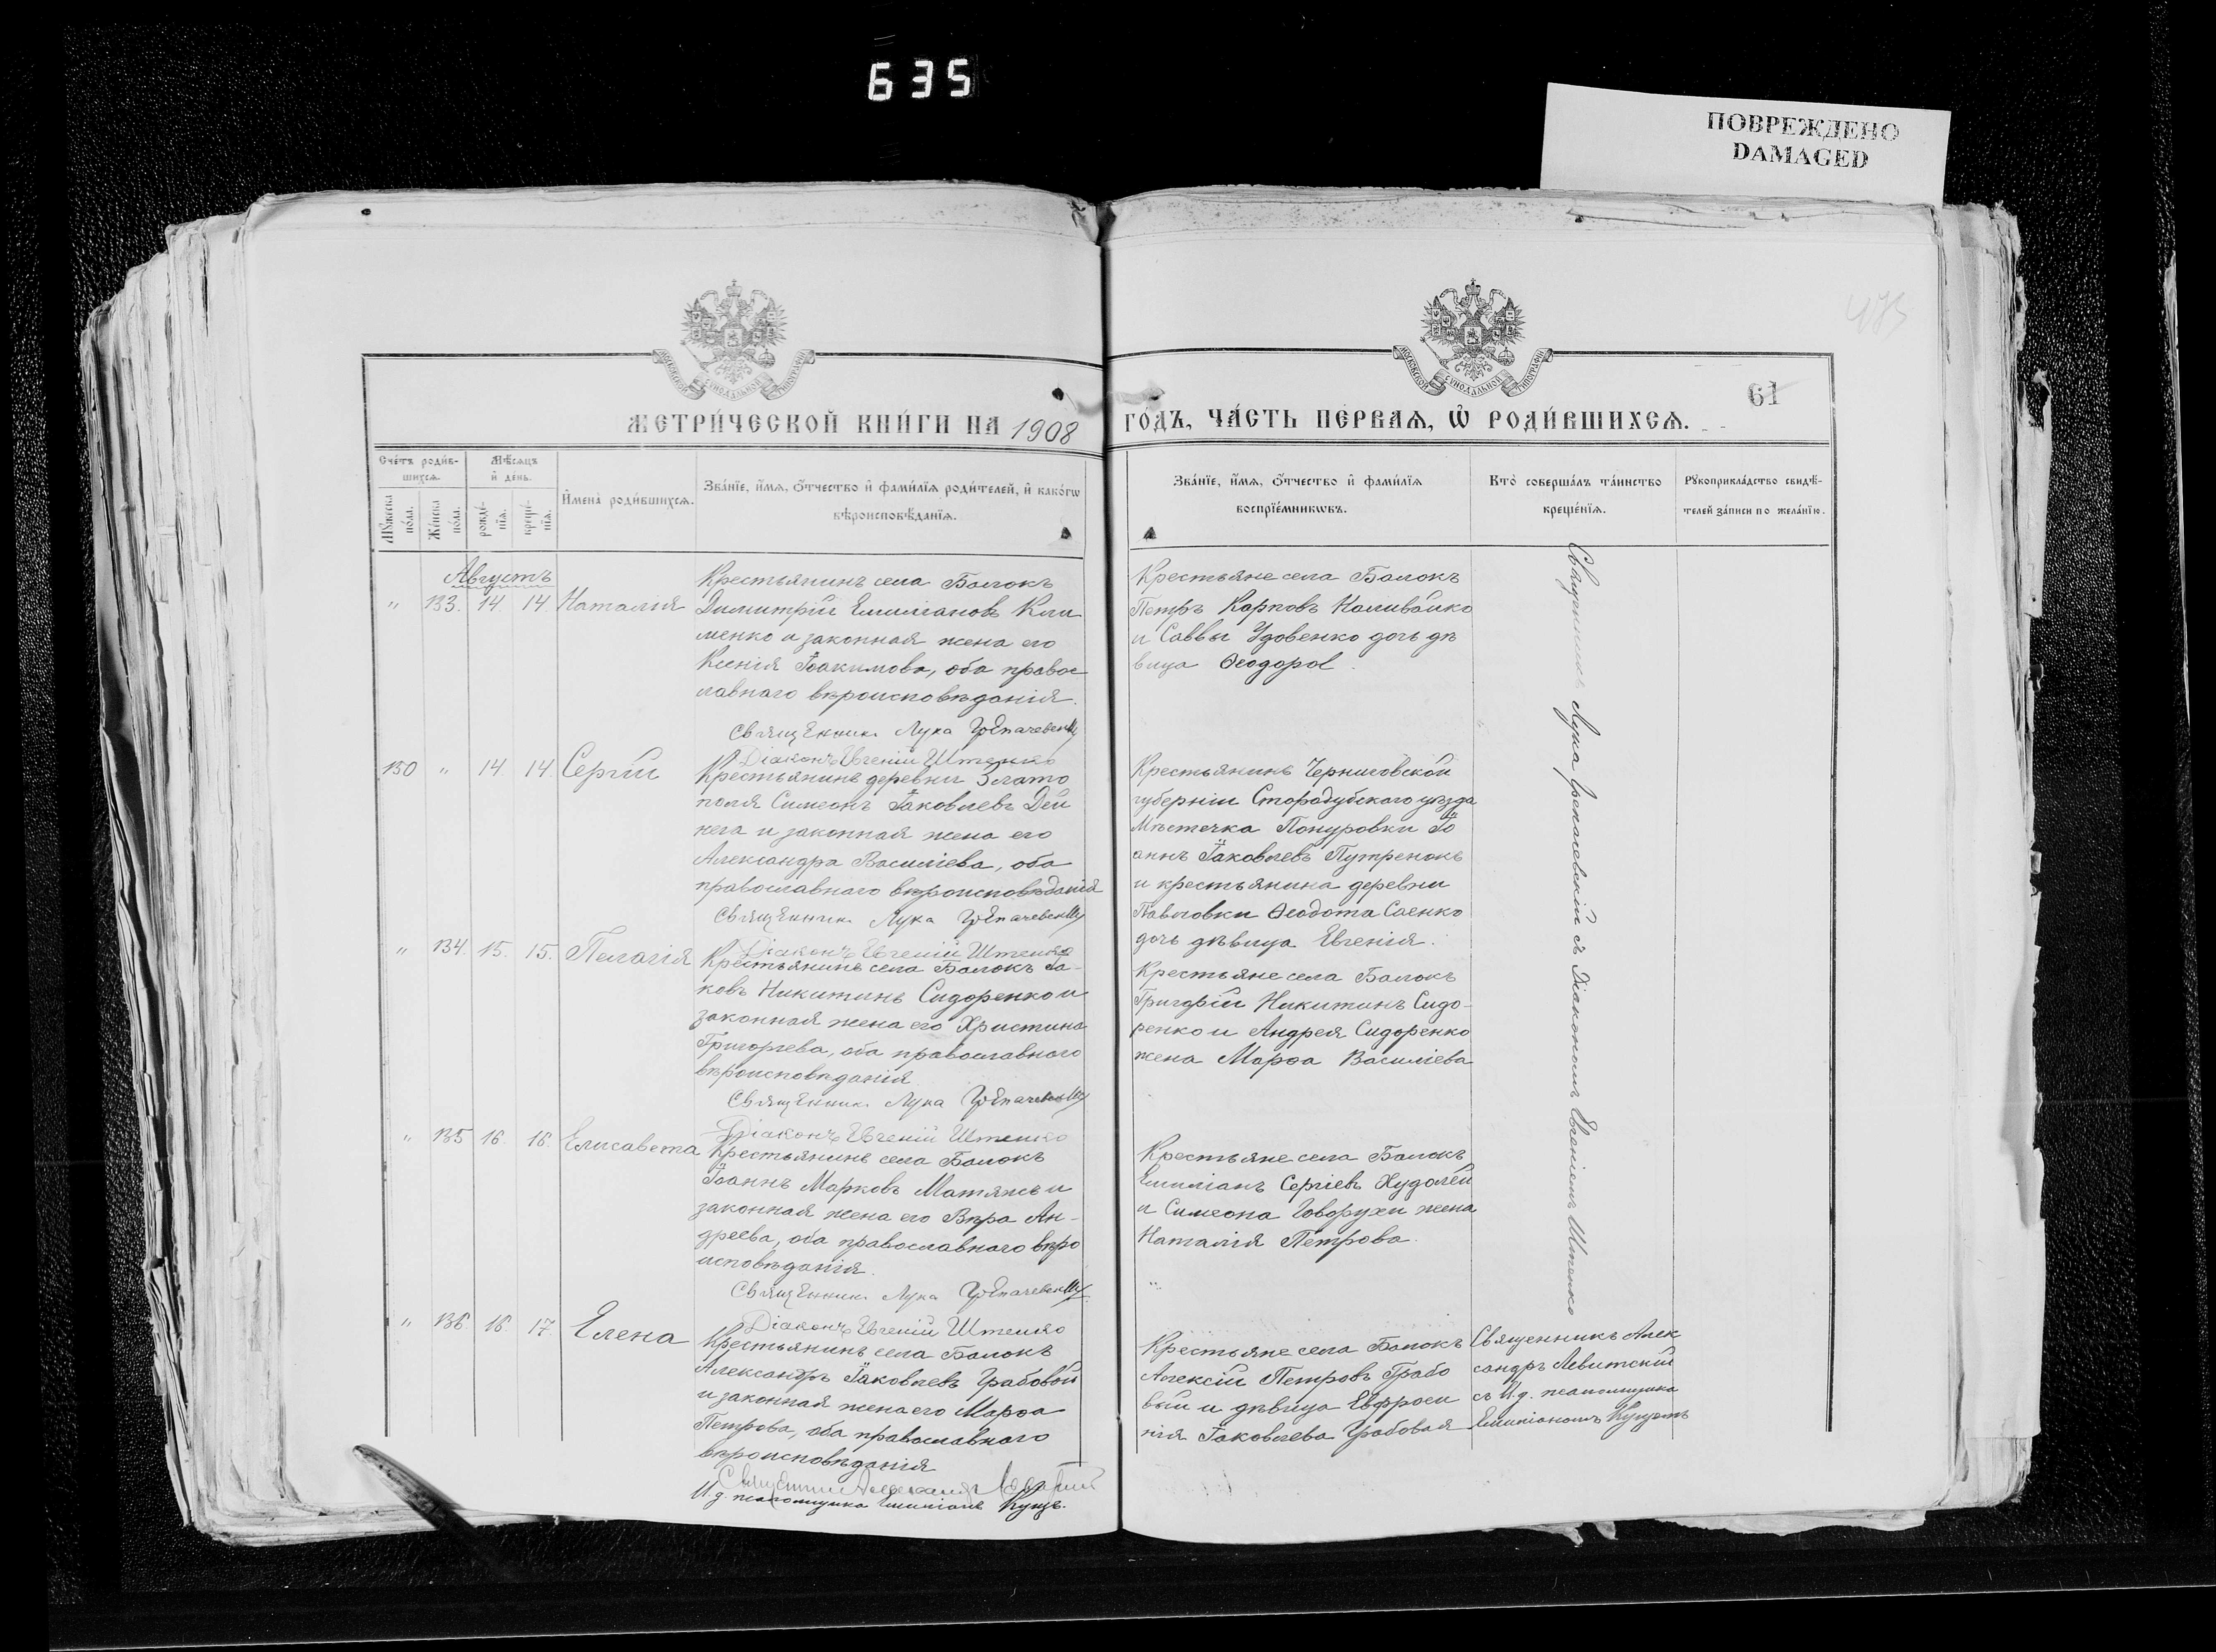 635
ПОВРЕЖДЕНО
DAMAGED
МОСКОВСКОЙ СѴНОДАЛЬНОЙ ТИПОГРАФІИ
МОСКОВСКОЙ СѴНОДАЛЬНОЙ ТИПОГРАФІИ
61
МЕТРИ́ЧЕСКОЙ КНИ́ГИ НА 1908 ГО́ДЪ, ЧА́СТЬ ПЕ́РВАѦ, Ѡ҆ РОДИ́ВШИХСѦ.
Сче́тъ роди́в-
шихсѧ.
Мꙋ́жеска по́ла.
Же́нска по́ла.
Мѣ́сѧцъ
и҆ де́нь.
рожде́-нїѧ.
креще́-нїѧ.
И҆мена̀ роди́вшихсѧ.
Зва́нїе, и҆́мѧ, ѻ҆́тчество и҆ фами́лїѧ роди́телей, и҆ како́гѡ
вѣроисповѣ́данїѧ.
Зва́нїе, и҆́мѧ, ѻ҆́тчество и҆ фами́лїѧ
воспрїе́мникѡвъ.
Кто̀ соверша́лъ та́инство
креще́нїѧ.
Рꙋкоприкла́дство свидѣ́-
телей за́писи по жела́нїю.
Августъ
" 133. 14 14. Наталія
Крестьянинъ села Балокъ
Димитрій Емиліановъ Кли
менко и законная жена его
Ксенія Іоакимова, оба правос
лавнаго вѣроисповѣданія.
Священник Лука
Діаконъ Евгеній Штепенко
Крестьяне села Балокъ
Петръ Карповъ Наливайко
и Саввы Удовенко дочь дѣ
вица Ѳеодора.
150 " 14 14. Сергій
Крестьянинъ деревни Злато
поля Симеонъ Іаковлевъ Дей
нега и законная жена его
Александра Василіева, оба
православнаго вѣроисповѣданія
Священник Лука
Діаконъ Евгеній Штепенко
Крестьянинъ Черниговской
губерніи Стародубскаго уѣзда
Мѣстечка Понуровки Іо
аннъ Іаковлевъ Путренокъ
и крестьянина деревни
Павловки Ѳеодота Саенко
дочь дѣвица Евгенія.
" 134. 15. 15. Пелагія
Крестьянинъ села Балокъ Іа-
ковъ Никитинъ Сидоренко и
законная жена его Христина
Григоріева, оба православнаго
вѣроисповѣданія
Священник Лука
Діаконъ Евгеній Штепенко
Крестьяне села Балокъ
Григорій Никитинъ Сидо-
ренко и Андрея Сидоренко
жена Марѳа Василіева
" 135 16. 16. Елисавета
Крестьянинъ села Балокъ
Іоаннъ Марковъ Матяжъ и
законная жена его Вѣра Ан-
дреева, оба православнаго вѣро
исповѣданія.
Священник Лука
Діаконъ Евгеній Штепенко
Крестьяне села Балокъ
Емиліанъ Сергіевъ Худолей
и Симеона Говорухи жена
Наталія Петрова.
" 136. 16. 17 Елена
Крестьянинъ села Балокъ
Александръ Іаковлевъ Грабовой
и законная жена его Марѳа
Петрова, оба православнаго
вѣроисповѣданія
Священникъ Александр
И. д. псаломщика Емиліанъ Кущъ.
Крестьяне села Балокъ
Алексій Петровъ Грабо
вый и дѣвица Евфроси
нія Іаковлева Грабовая
Священникъ Алек
сандръ Левитскій
съ И. д. псаломщика
Емиліаномъ Кущомъ
Лука съ Діакономъ Евгеніемъ Штепенко